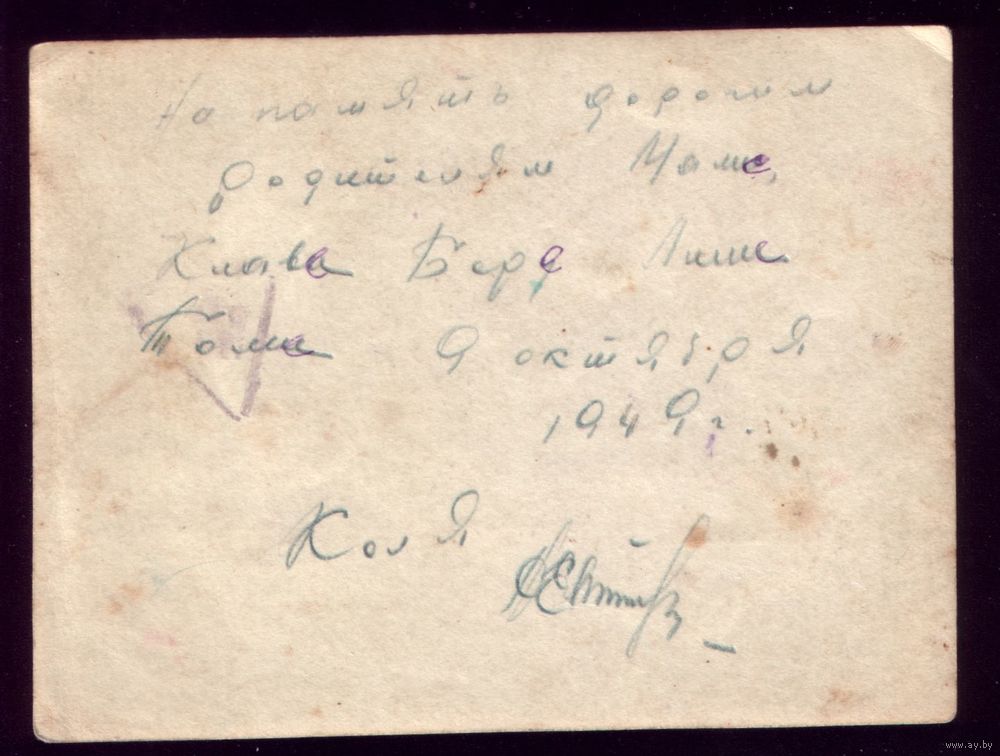 На память дорогим
родителям Маме,
Клаве Вере Лиле
Томе 9 октября
1949 г.
Коля
www.ay.by